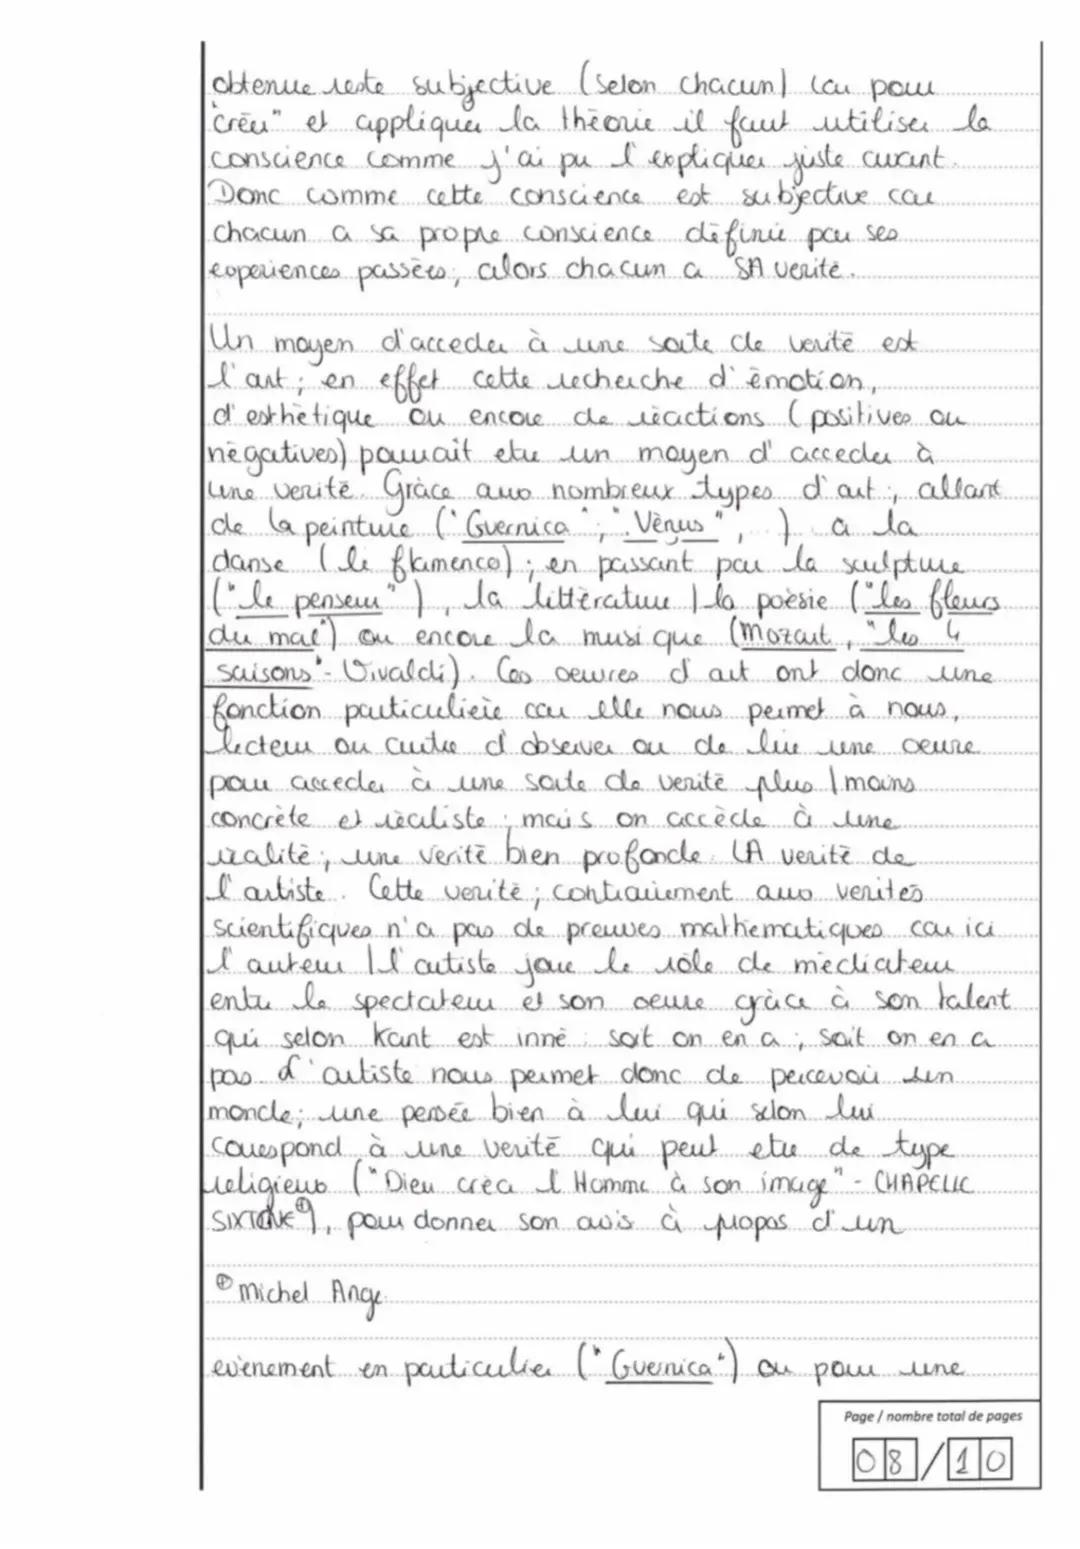 obtenue reste subjective (selon chacun) car pour
"créer" et appliquer la théorie il faut utiliser la
conscience comme j'ai pu l'expliquer juste avant.
Donc comme cette conscience est subjective car
chacun a sa propre conscience définie par ses
experiences passées, alors chacun a SA verité.
Un moyen d'acceder à une sorte de verité est
l'art ; en effet cette recherche d'émotion,
d'esthétique ou encore de réactions (positives ou
négatives) pourrait etre un moyen d'acceder à
une verité. Grâce aux nombreux types d'art ; allant
de la peinture ("Guernica" ; "Vénus", ..) a la
danse (le flamenco) ; en passant par la sculpture
("le penseur"), la littérature / la poésie ("les fleurs
du mal") ou encore la musique (Mozart, "les 4
saisons" - Vivaldi). Ces oeuvres d'art ont donc une
fonction particulière car elle nous permet à nous,
lecteur ou autre d'observer ou de lire une oeuvre
pour acceder à une sorte de verité plus / moins
concrète et réaliste ; mais on accède à une
réalité ; une verité bien profonde. LA verité de
l'artiste. Cette verité ; contrairement aux verités
scientifiques n'a pas de preuves mathematiques car ici
l'auteur / l'artiste joue le rôle de médiateur
entre le spectateur et son oeuvre grâce à son talent
qui selon Kant est inné : soit on en a ; soit on en a
pas. L'artiste nous permet donc de percevoir un
monde ; une pensée bien à lui qui selon lui
correspond à une verité qui peut etre de type
religieux ("Dieu créa l'Homme à son image" - CHAPELLE
SIXTINE①), pour donner son avis à propos d'un
① Michel Ange.
evènement en particulier ("Guernica") ou pour une
Page / nombre total de pages
08/10